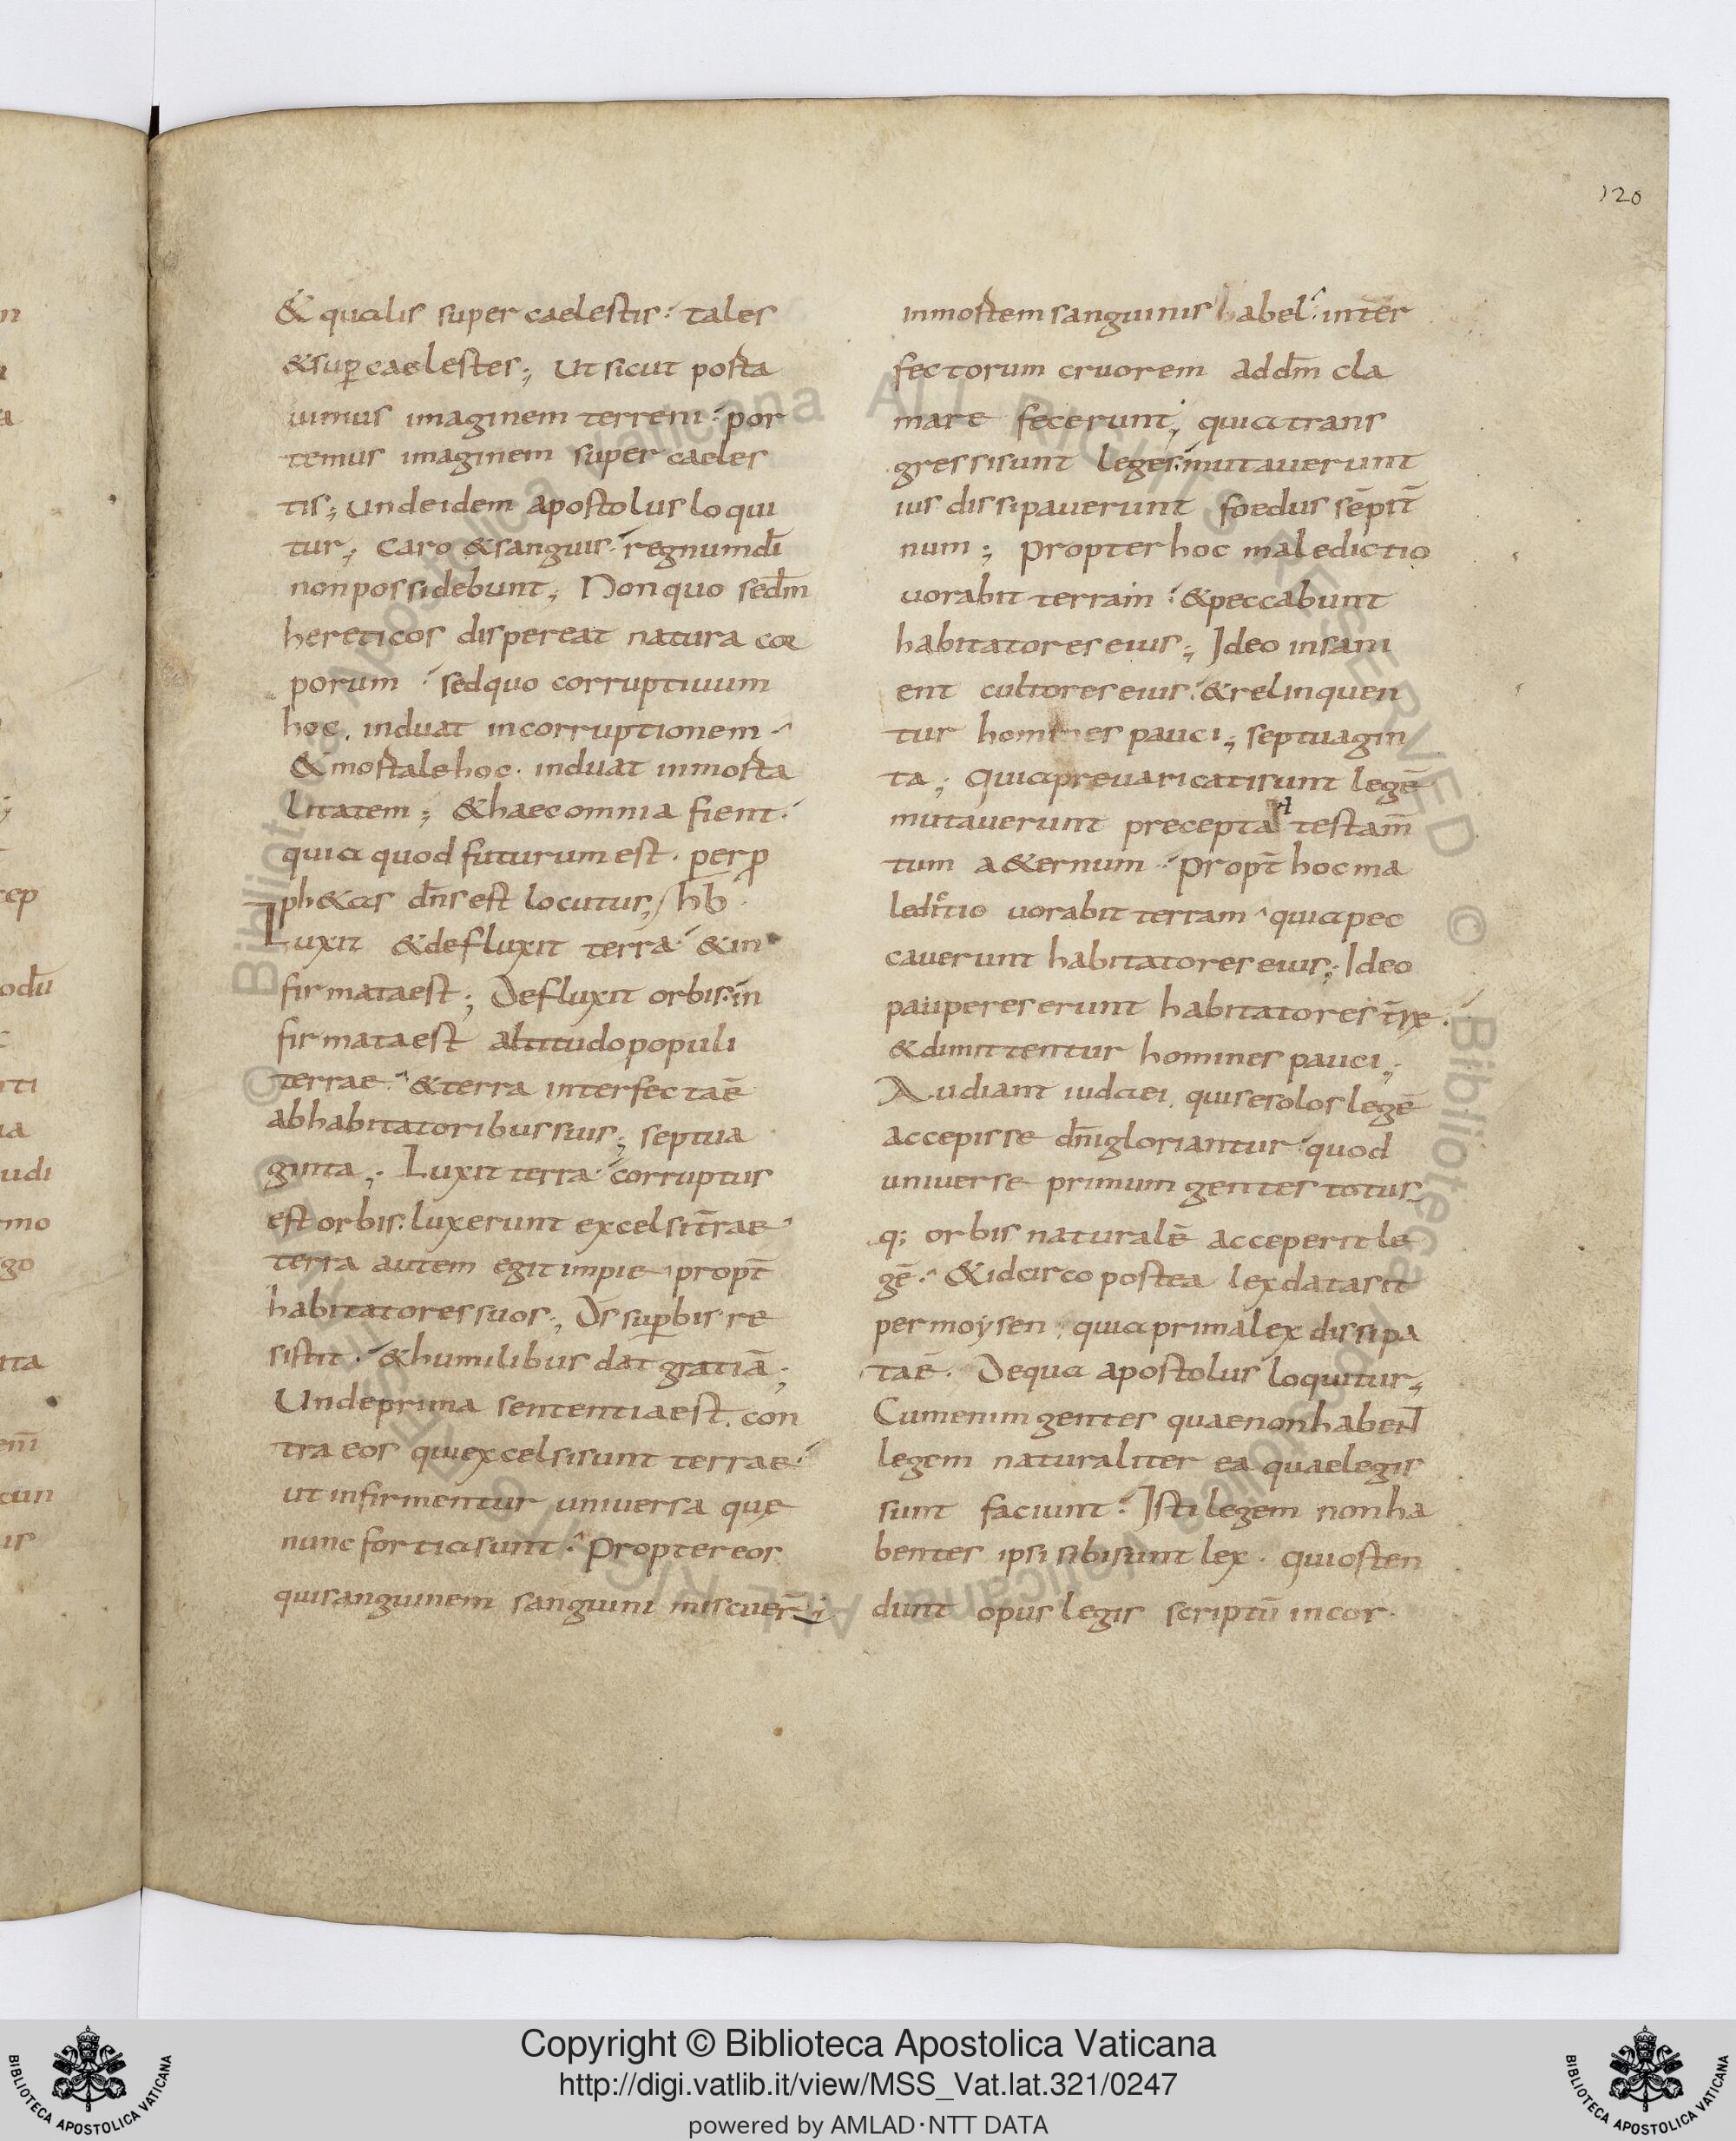 120
& qualis super caelestis: tales
&sup̱caelestes; ut sicut porta
uimus imaginem terreni: por
temus imaginem super caeles
tis; unde idem apostolus loqui
tur; caro &sanguis: regnum dī
non possidebunt; Non quo sedm̄
hereticos dispereat natura cor
porum: sed quo corruptiuum
hoc. induat incorruptionem
&mortale hoc. induat inmorta
litatem; &haec omnia fient:
quia quod futurum est. per ꝓ
ph&as dn̄s est locutus; hƀ.
Luxit &defluxit terra: &in
firmata est; Defluxit orbis: in
firmata est altitudo populi
terrae: &terra interfecta ē
ab habitatoribus suis; septua
ginta; Luxit terra: corruptus
est orbis: luxerunt excelsi t̄rae
terra autem egit impie propt̄
habitatores suos; Ds̄ sup̱bis re
sistit: &humilibus dat gratiā;
Unde prima sententia est. con
tra eos qui excelsi sunt terrae:
ut infirmentur uniuersa que
nunc fortia sunt: Propter eos
qui sanguinem sanguini miscuer̄;
in mortem sanguinis abel: inter
fectorum cruorem ad dm̄ cla
mare fecerunt; quia trans
gressi sunt leges: mutauerunt
ius dissipauerunt foedus sēpit̄
num; Propter hoc maledictio
uorabit terram: &peccabunt
habitatores eius; Ideo insani
ent cultores eius: &relinquen
tur homines pauci; septuagin
ta; Quia preuaricati sunt legē
mutauerunt precepta testam̄
tum a&ernum: Propt̄ hoc ma
ledictio uorabit terram quia pec
cauerunt habitatores eius; Ideo
pauperes erunt habitatores t̄rę:
&dimittentur homines pauci;
Audiant iudaei. qui se solos legē
accepisse dn̄i gloriantur: quod
uniuerse primum gentes totus
q; orbis naturalē acceperit le
gē: &idcirco postea lex data sit
per moysen. quia prima lex dissipa
ta ē. De qua apostolus loquitur;
Cum enim gentes quae non habent
legem naturaliter ea quae legis
sunt faciunt: Isti legem non ha
bentes ipsi sibi sunt lex. qui osten
dunt opus legis scriptū in cor
n
a
cep
odū
iti
ua
udi
rmo
go
ita
cun
us
© Biblioteca Apostolica Vaticana ALL RIGHTS RESERVED
© Biblioteca Apostolica Vaticana ALL RIGHTS RESERVED
Copyright © Biblioteca Apostolica Vaticana
http://digi.vatlib.it/view/MSS_Vat.lat.321/0247
powered by AMLAD·NTT DATA
BIBLIOTECA APOSTOLICA VATICANA
BIBLIOTECA APOSTOLICA VATICANA